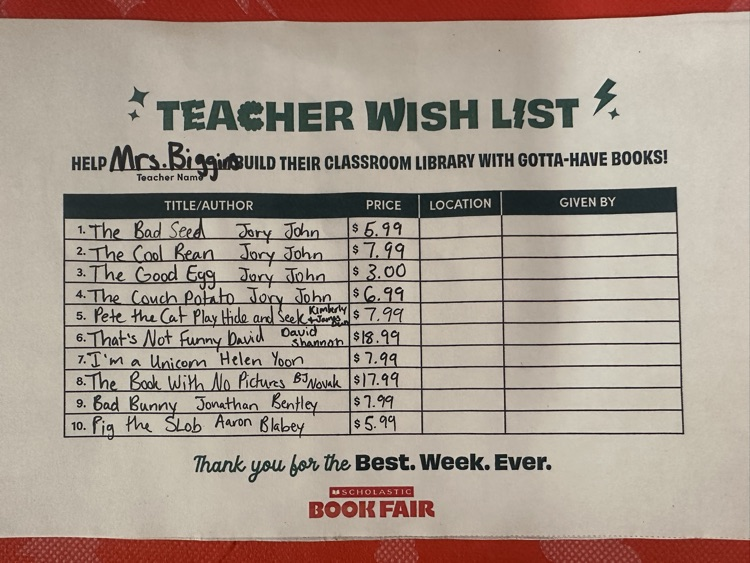 TEACHER WISH LIST
HELP Mrs. Biggins BUILD THEIR CLASSROOM LIBRARY WITH GOTTA-HAVE BOOKS!
Teacher Name
TITLE/AUTHOR PRICE LOCATION GIVEN BY
1. The Bad Seed Jory John $ 5.99
2. The Cool Bean Jory John $ 7.99
3. The Good Egg Jory John $ 3.00
4. The Couch Potato Jory John $ 6.99
5. Pete the Cat Play Hide and Seek Kimberly + James Dean $ 7.99
6. That's Not Funny David David Shannon $18.99
7. I'm a Unicorn Helen Yoon $ 7.99
8. The Book With No Pictures BJ Novak $17.99
9. Bad Bunny Jonathan Bentley $ 7.99
10. Pig the Slob Aaron Blabey $ 5.99
Thank you for the Best. Week. Ever.
SCHOLASTIC
BOOK FAIR